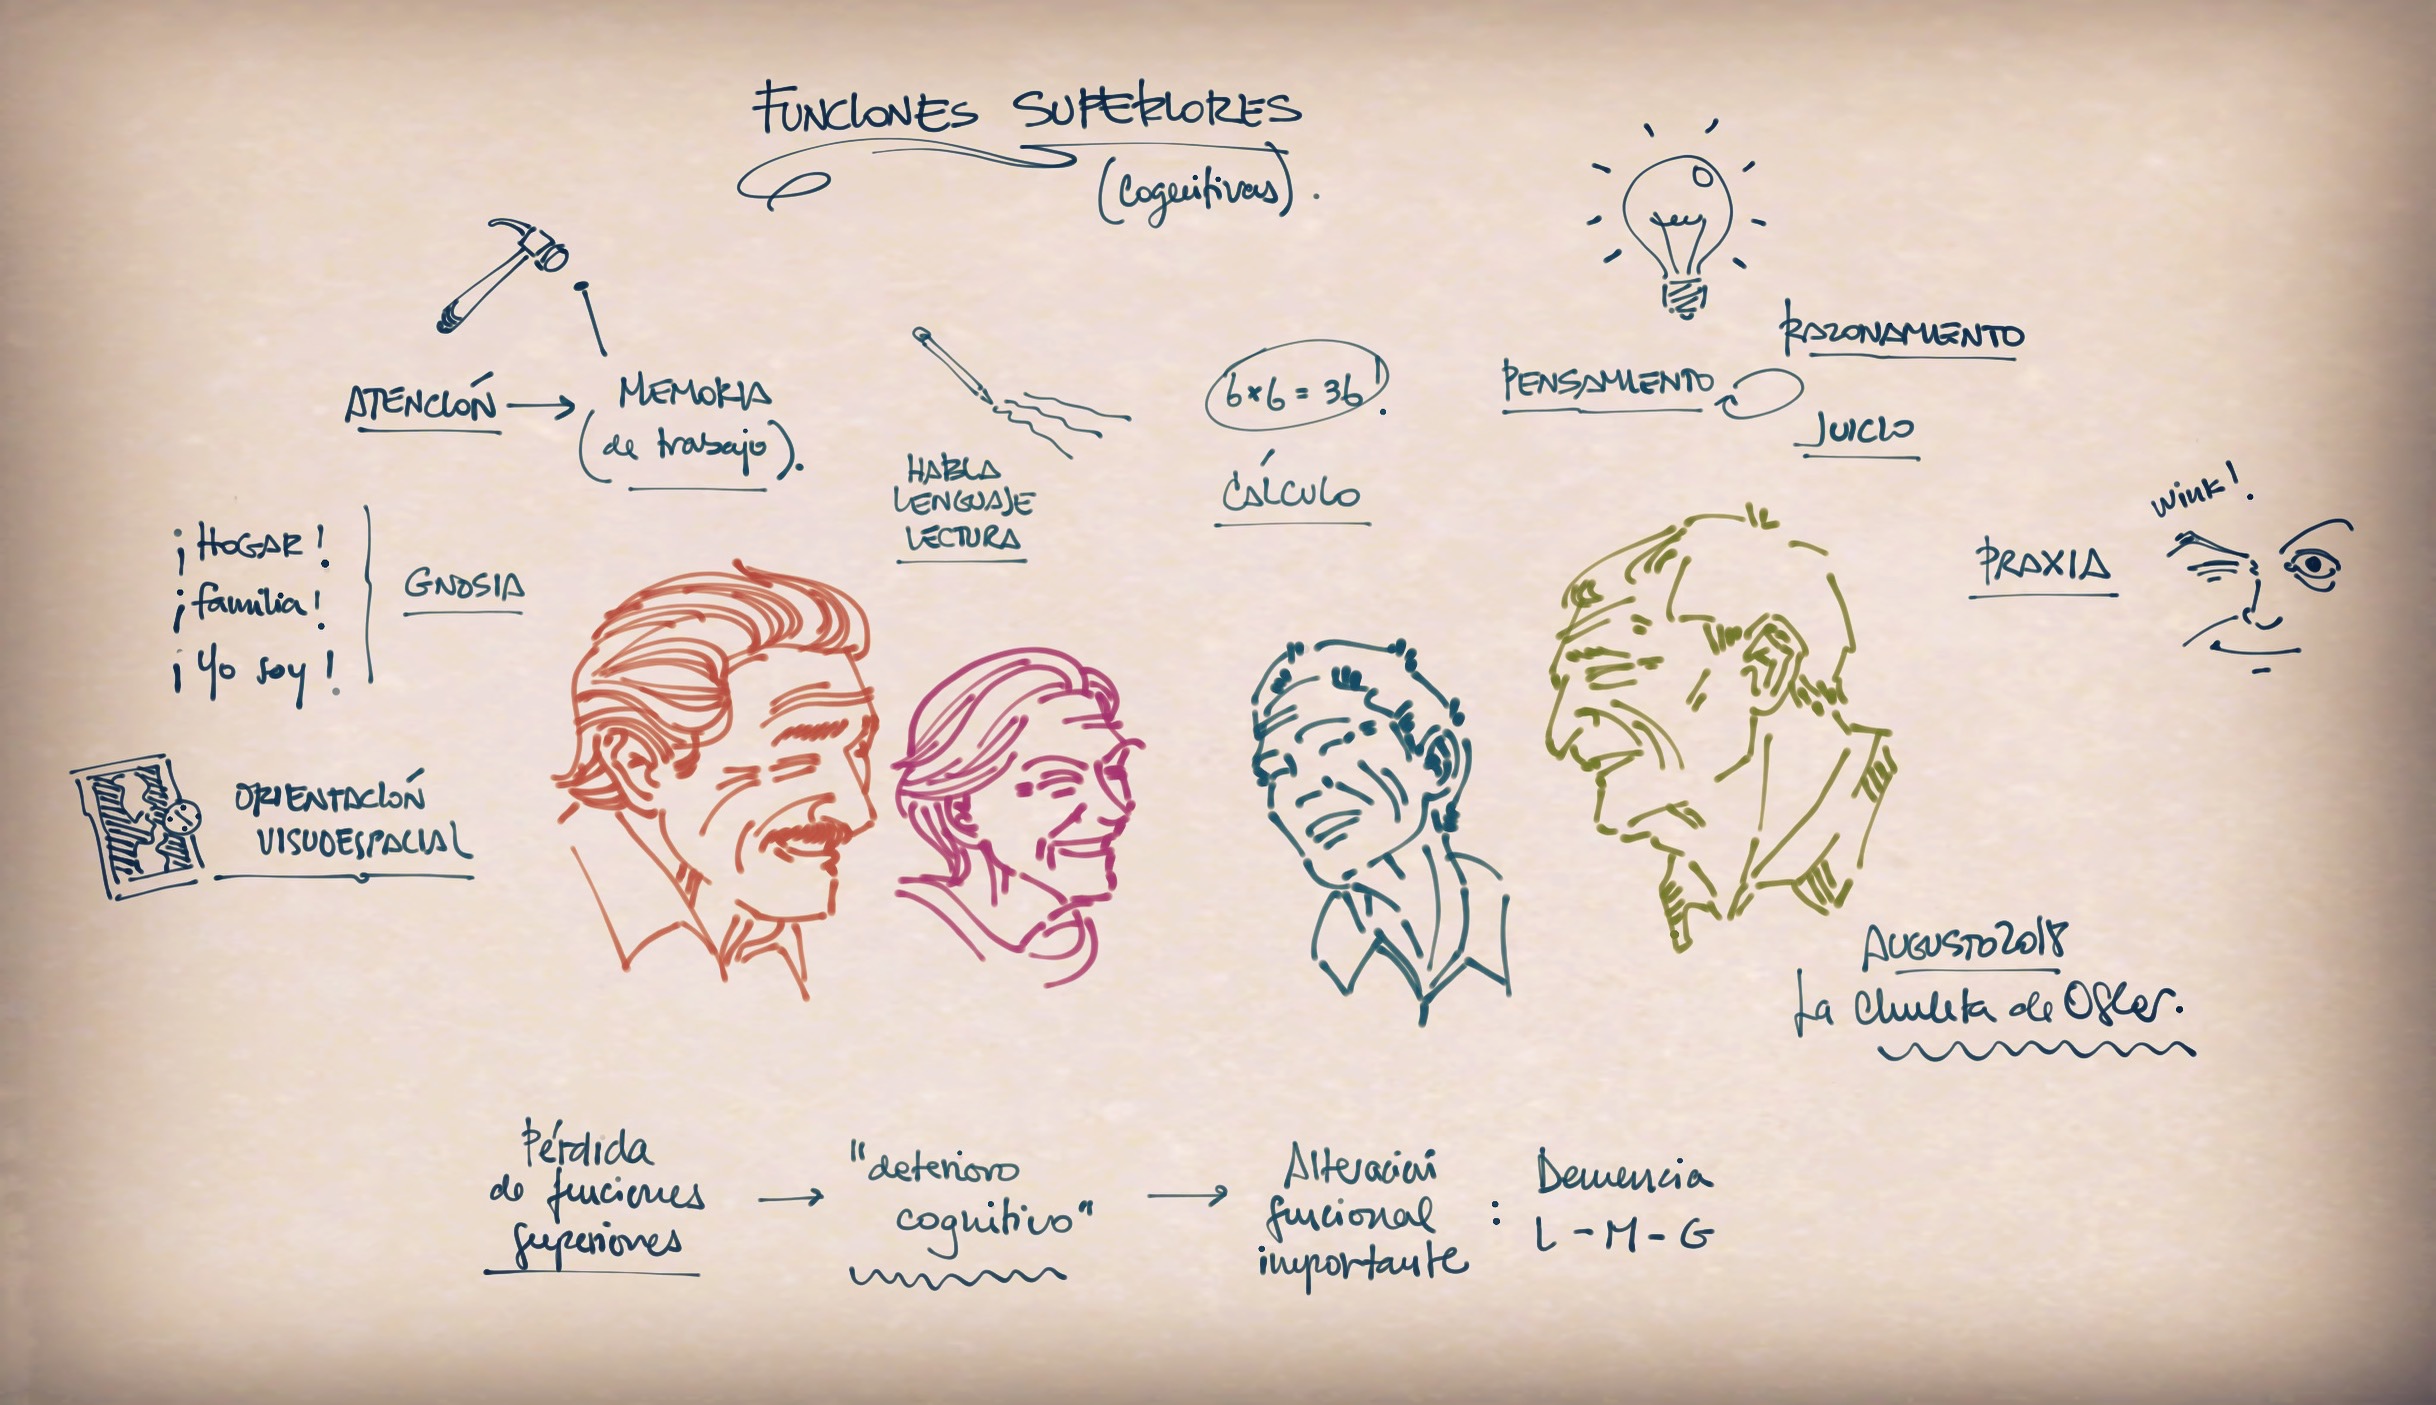 FUNCIONES SUPERIORES
(cognitivas).
ATENCIÓN → MEMORIA
(de trabajo).
HABLA
LENGUAJE
LECTURA
6x6 = 36!
CÁLCULO
PENSAMIENTO
RAZONAMIENTO
JUICIO
wink!
PRAXIA
¡HOGAR!
¡familia!
¡Yo soy!
GNOSIA
ORIENTACIÓN
VISUOESPACIAL
AUGUSTO 2018
La Chuleta de Osler.
Pérdida
de funciones
superiores
→ "deterioro
cognitivo"
→ Alteración
funcional
importante
: Demencia
L - M - G